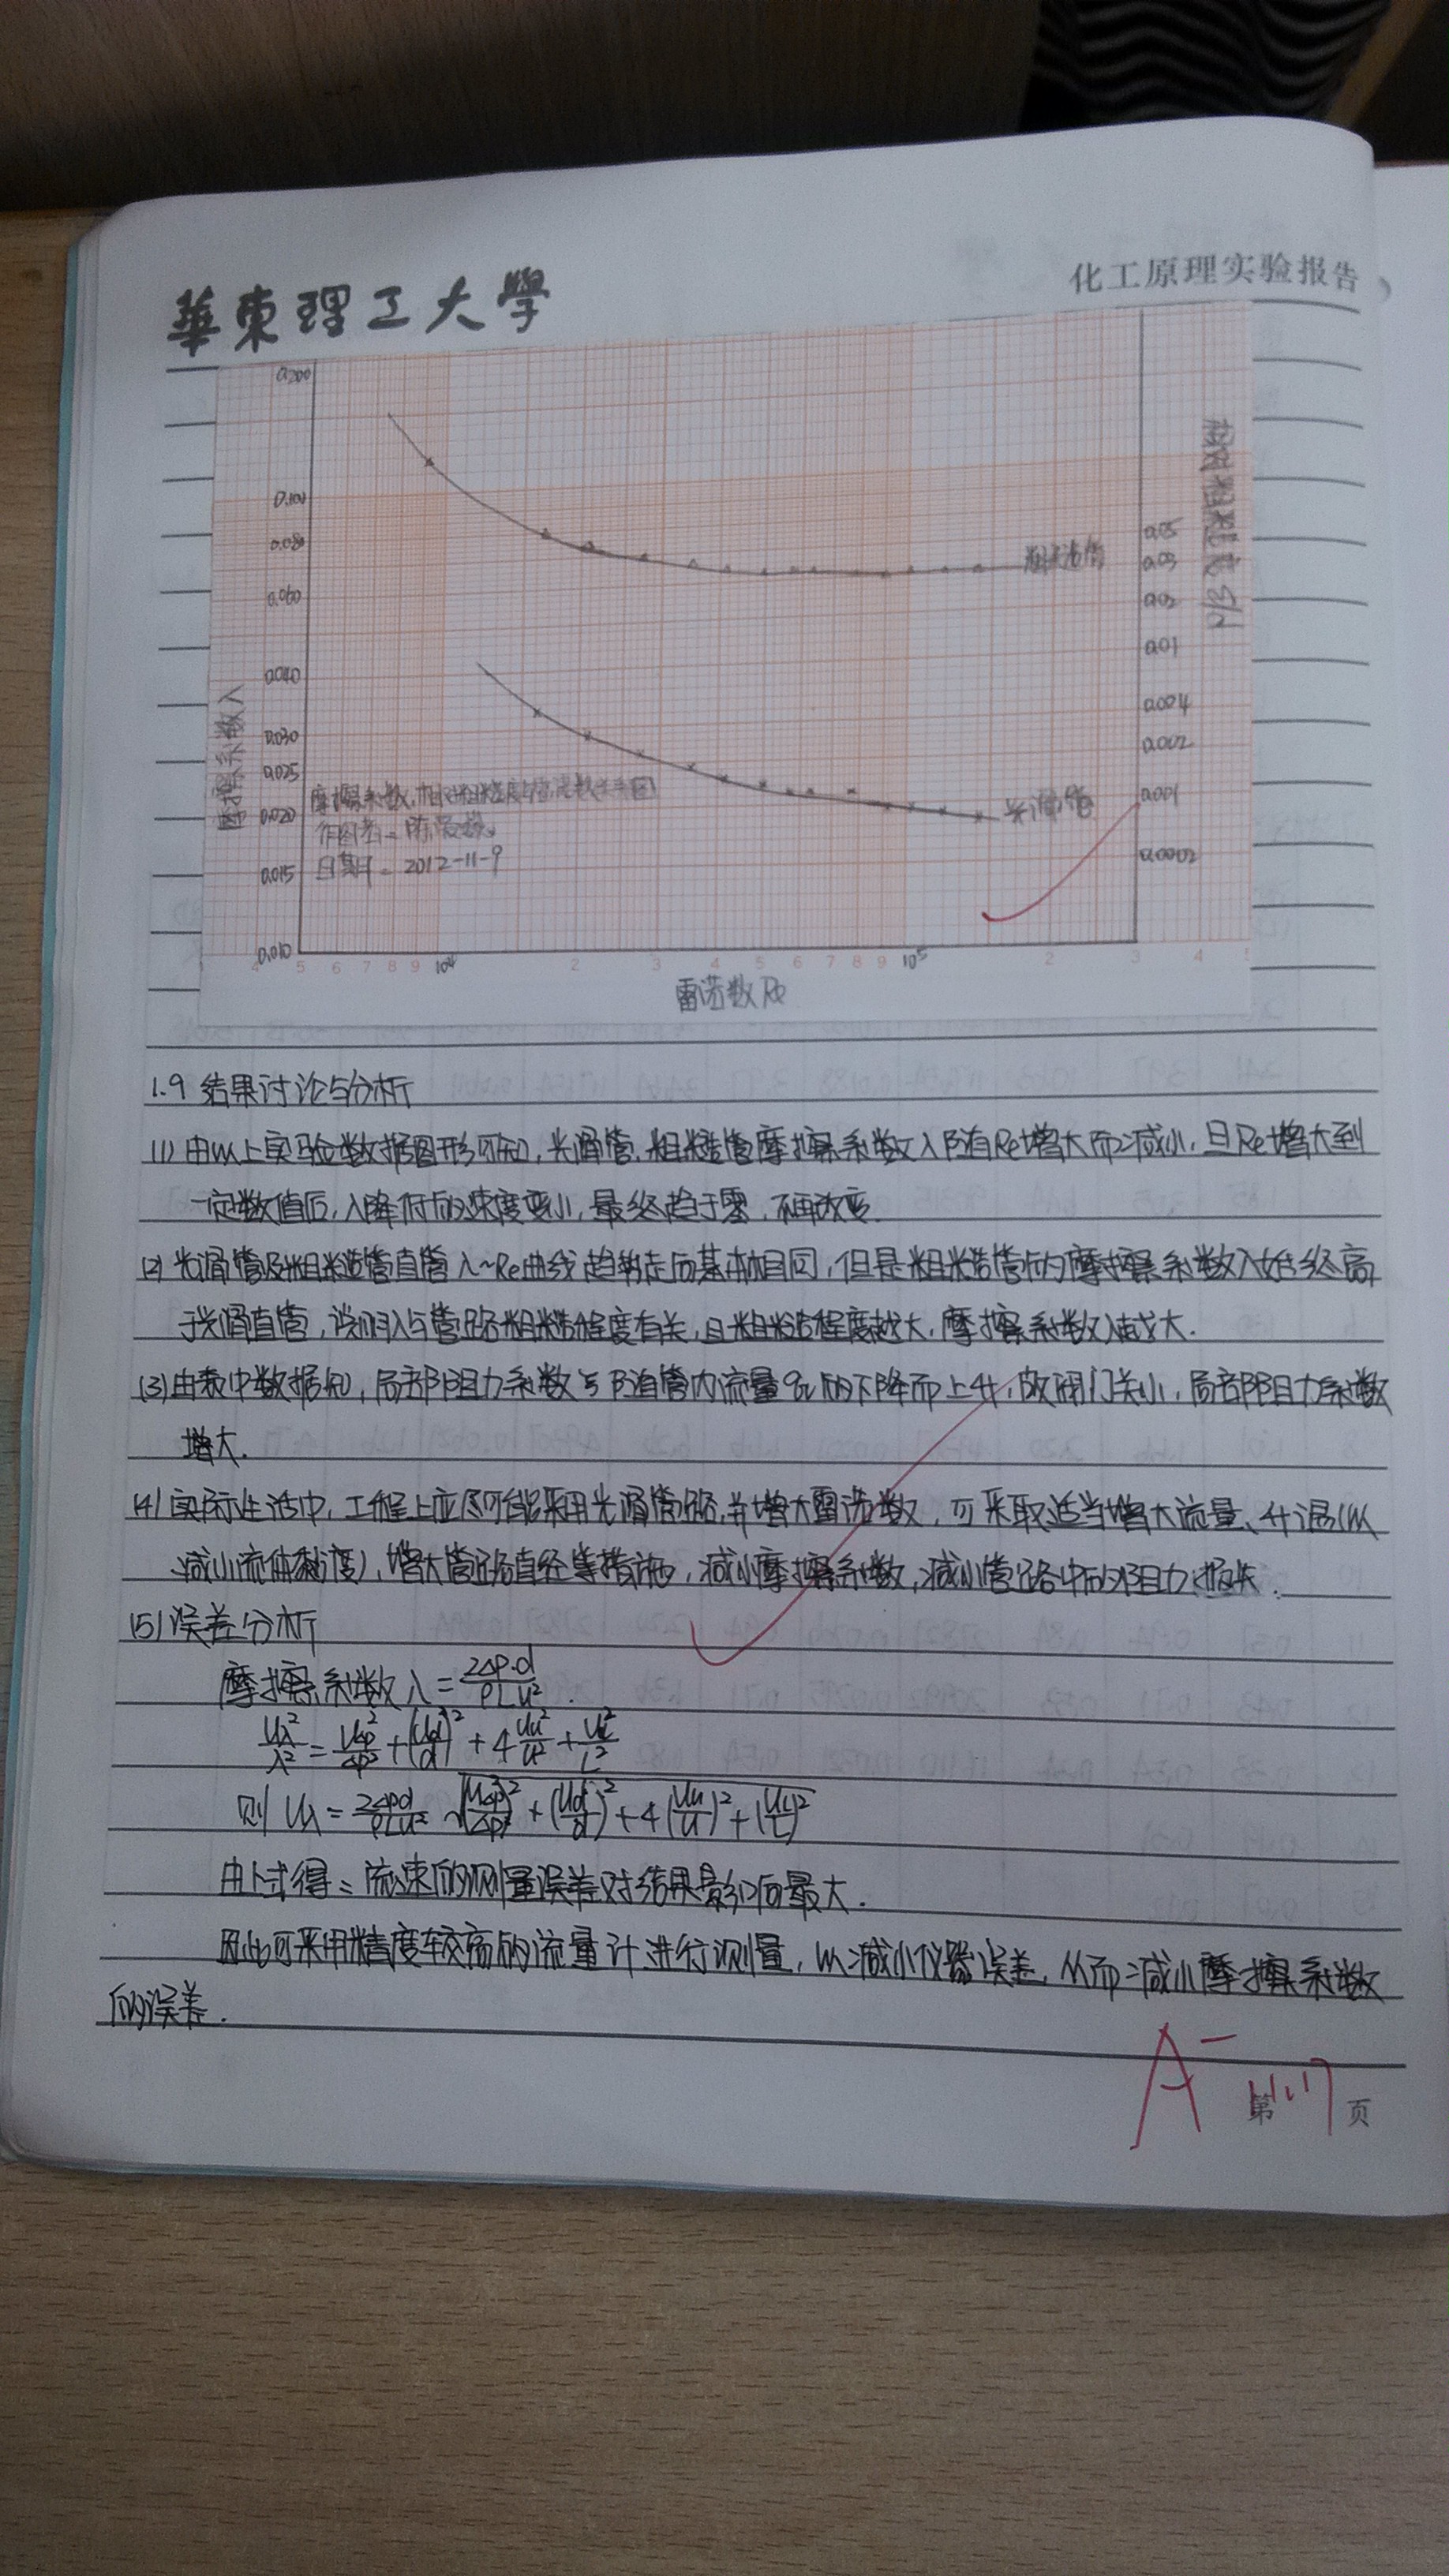 華東理工大學
化工原理实验报告
0.200
0.100
0.080
0.060
0.040
0.030
0.025
0.020
0.015
0.010
摩擦系数λ
粗糙管
光滑管
0.05
0.03
0.02
0.01
0.004
0.002
0.001
0.0002
相对粗糙度 ε/d
摩擦系数、相对粗糙度与雷诺数关系图
作图者:
日期: 2012-11-9
4 5 6 7 8 9 10⁴ 2 3 4 5 6 7 8 9 10⁵ 2 3 4 5
雷诺数Re
1.9 结果讨论与分析
(1) 由以上实验数据图形可知,光滑管、粗糙管摩擦系数λ随着Re增大而减小,且Re增大到
一定数值后,λ降低的速度变小,最终趋于零,不再改变.
(2) 光滑管及粗糙管直管λ~Re曲线趋势走向基本相同,但是粗糙管的摩擦系数λ始终高
于光滑直管,说明λ与管路粗糙程度有关,且粗糙程度越大,摩擦系数λ越大.
(3) 由表中数据知,局部阻力系数ξ随管内流量qv的下降而上升,故阀门关小,局部阻力系数
增大.
(4) 实际生活中,工程上应尽可能采用光滑管路,并增大雷诺数,可采取适当增大流量、升温(以
减小流体黏度),增大管路直径等措施,减小摩擦系数,减小管路中的阻力损失.
(5) 误差分析
摩擦系数λ=2Δp·d/ρLu².
Uλ²/λ²=UΔp²/Δp²+(Ud/d)²+4Uu²/u²+UL²/L²
则 Uλ=2Δpd/ρLu² √(UΔp/Δp)²+(Ud/d)²+4(Uu/u)²+(UL/L)²
由上式得:流速的测量误差对结果影响最大.
因此可采用精度较高的流量计进行测量,以减小仪器误差,从而减小摩擦系数
的误差.
A-
11.17
第 页